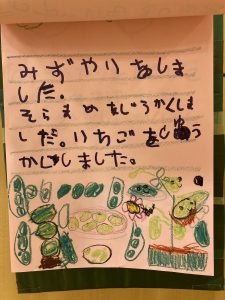 みずやりをしま
した。
そらまめをしゅうかくしま
した。いちごをしゅう
かくしました。